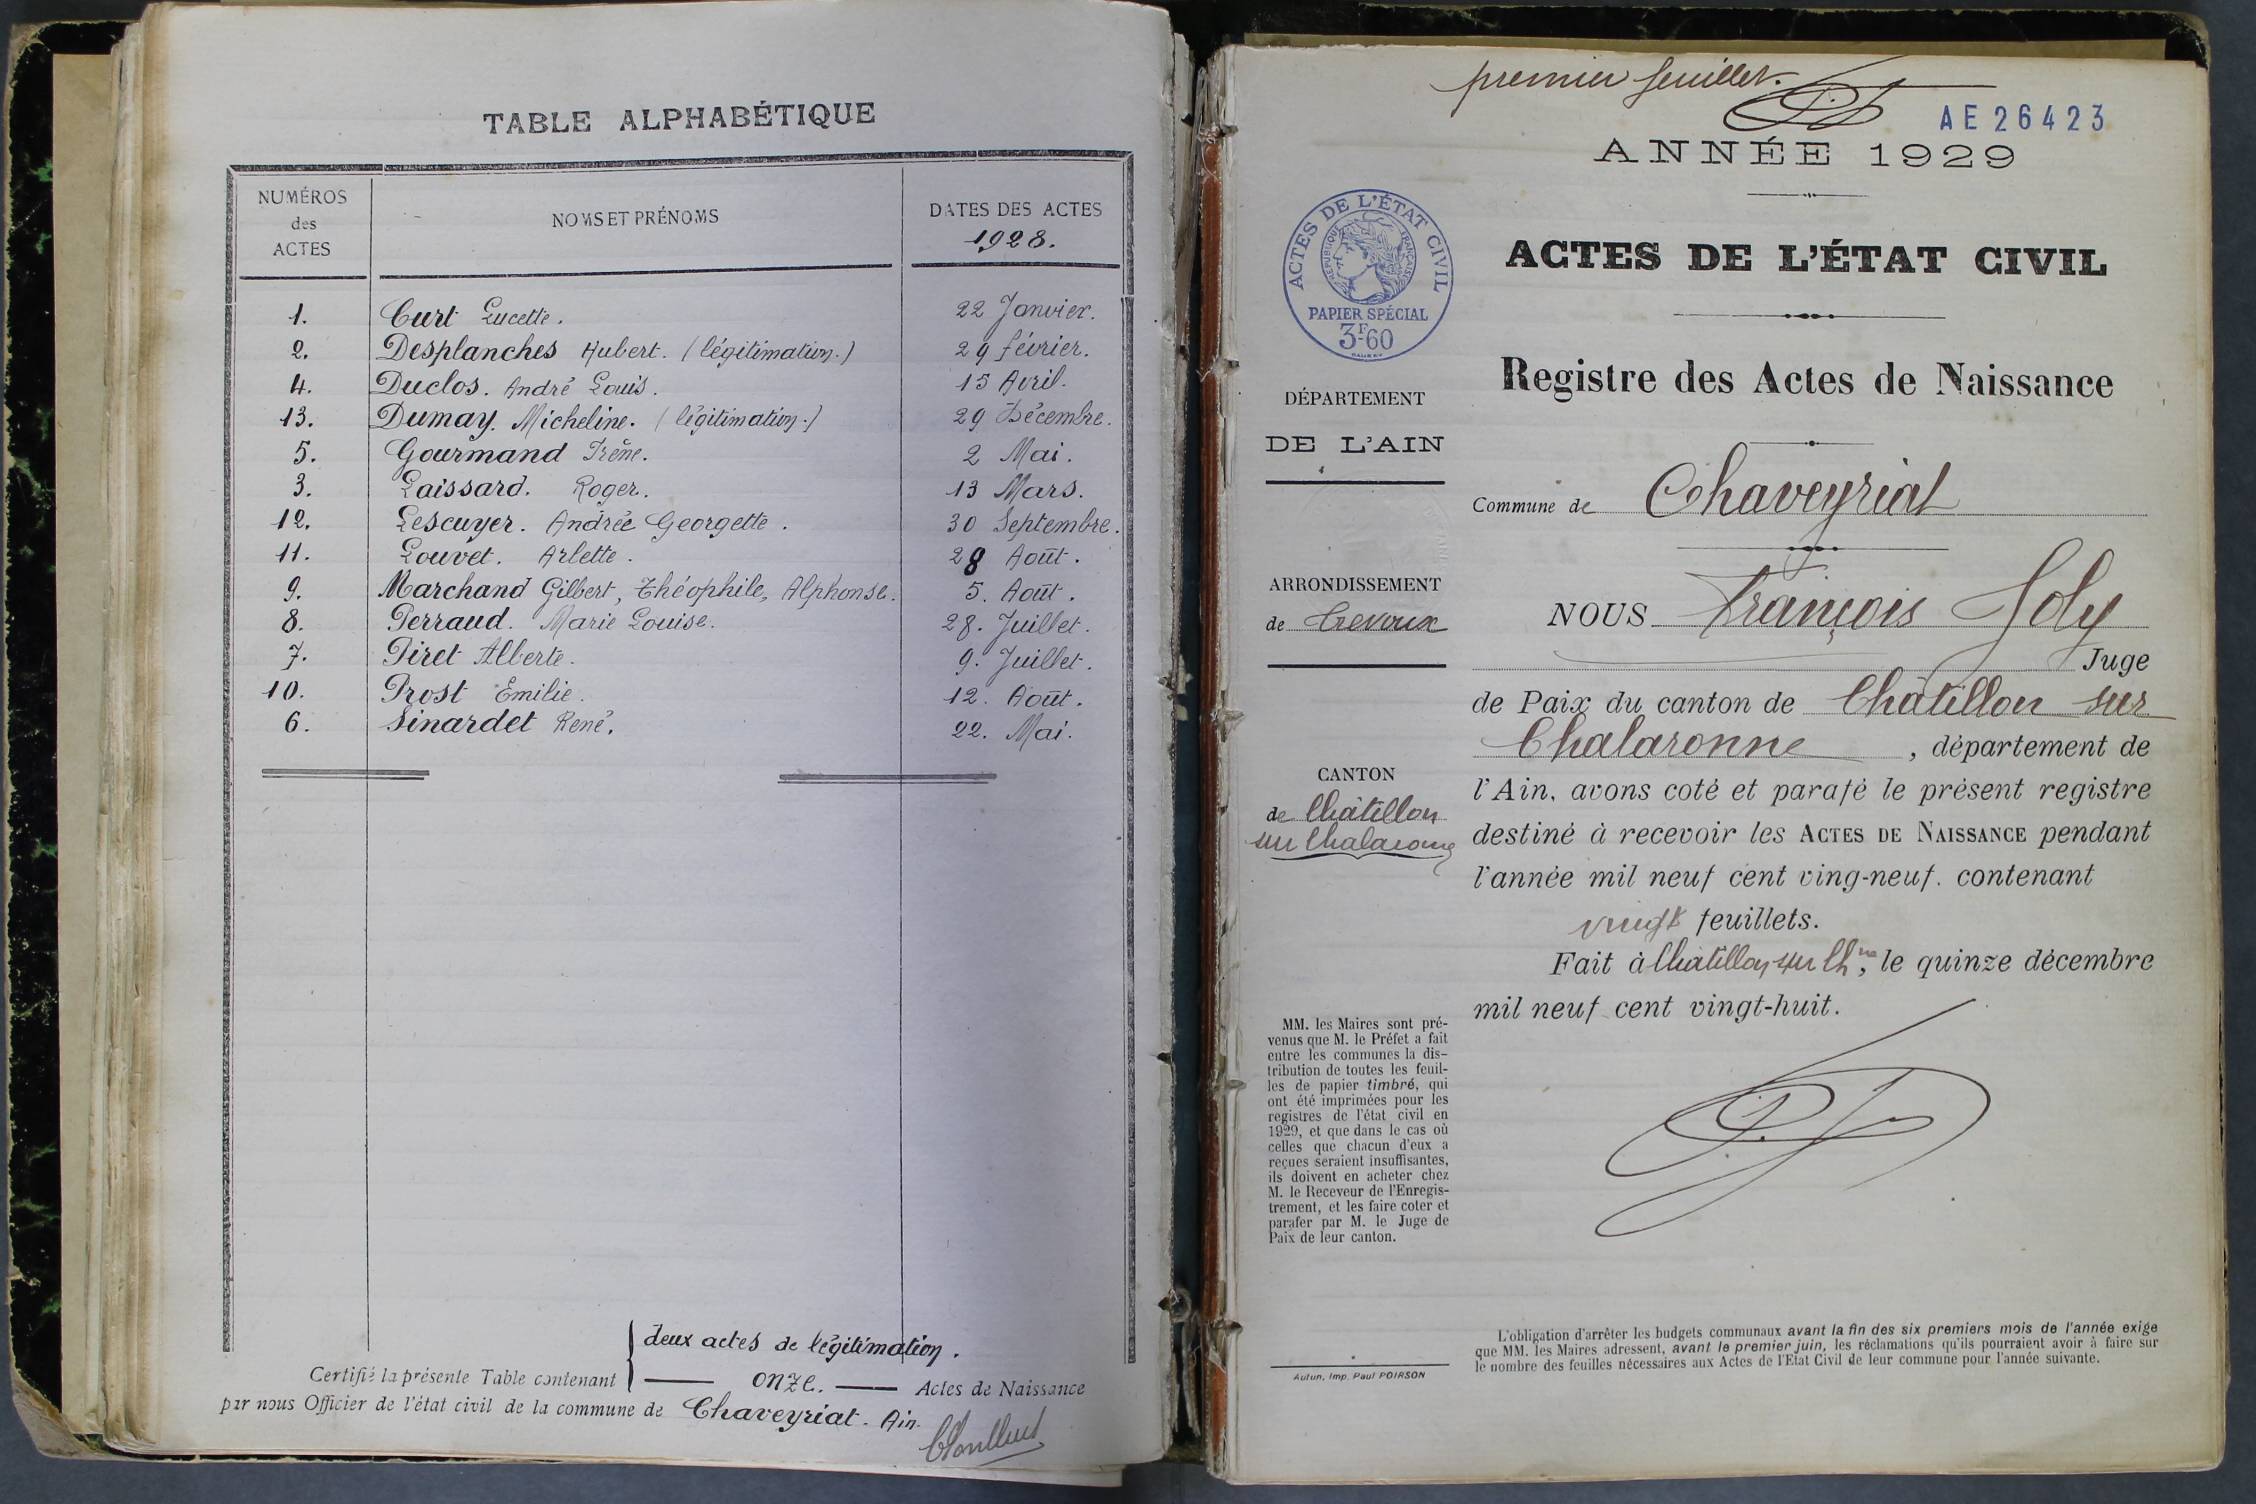 TABLE ALPHABÉTIQUE
NUMÉROS
des
ACTES
NOMS ET PRÉNOMS
DATES DES ACTES
1928.
1. Curt Lucette. 22 Janvier.
2. Desplanches Hubert. (légitimation.) 29 février.
4. Duclos. André Louis. 15 Avril.
13. Dumay. Micheline. (légitimation.) 29 Décembre.
5. Gourmand Irène. 2 Mai.
3. Laissard. Roger. 13 Mars.
12. Lescuyer. Andrée Georgette. 30 Septembre.
11. Louvet. Arlette. 28 Août.
9. Marchand Gilbert, Théophile, Alphonse. 5. Août.
8. Perraud. Marie Louise. 28. Juillet.
7. Piret Alberte. 9. Juillet.
10. Prost Emilie. 12. Août.
6. Sinardet René. 22. Mai.
deux actes de légitimation.
Certifié la présente Table contenant onze. Actes de Naissance
par nous Officier de l'état civil de la commune de Chaveyriat. Ain.
premier feuillet.
AE26423
ANNÉE 1929
ACTES DE L'ÉTAT CIVIL
RÉPUBLIQUE FRANÇAISE
PAPIER SPÉCIAL
3F60
ACTES DE L'ÉTAT CIVIL
Registre des Actes de Naissance
DÉPARTEMENT
DE L'AIN
Commune de Chaveyriat
ARRONDISSEMENT
de Trevoux
CANTON
de Châtillon
sur Chalaronne
NOUS François Joly
Juge
de Paix du canton de Châtillon sur
Chalaronne, département de
l'Ain, avons coté et parafé le présent registre
destiné à recevoir les ACTES DE NAISSANCE pendant
l'année mil neuf cent ving-neuf. contenant
vingt feuillets.
Fait à Châtillon sur Chne, le quinze décembre
mil neuf cent vingt-huit.
MM. les Maires sont pré-
venus que M. le Préfet a fait
entre les communes la dis-
tribution de toutes les feuil-
les de papier timbré, qui
ont été imprimées pour les
registres de l'état civil en
1929, et que dans le cas où
celles que chacun d'eux a
reçues seraient insuffisantes,
ils doivent en acheter chez
M. le Receveur de l'Enregis-
trement, et les faire coter et
parafer par M. le Juge de
Paix de leur canton.
Autun, Imp. Paul POIRSON
L'obligation d'arrêter les budgets communaux avant la fin des six premiers mois de l'année exige
que MM. les Maires adressent, avant le premier juin, les réclamations qu'ils pourraient avoir à faire sur
le nombre des feuilles nécessaires aux Actes de l'Etat Civil de leur commune pour l'année suivante.